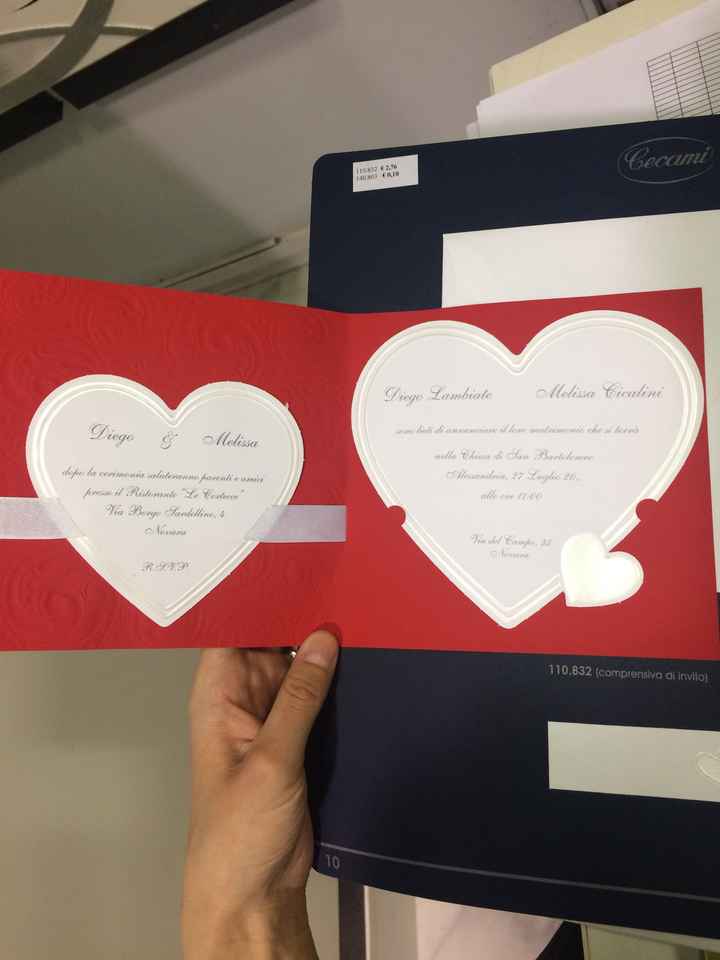 110.832 € 2,76
140.803 € 0,10
Cecami
Diego & Melissa
dopo la cerimonia saluteranno parenti e amici
presso il Ristorante "Le Cortecce"
Via Borgo Sardellino, 4
Novara
R.S.V.P.
Diego Lambiate Melissa Cicalini
sono lieti di annunciare il loro matrimonio che si terrà
nella Chiesa di San Bartolomeo
Alessandria, 27 Luglio 20..
alle ore 17.00
Via del Campo, 33
Novara
110.832 (comprensiva di invito)
10